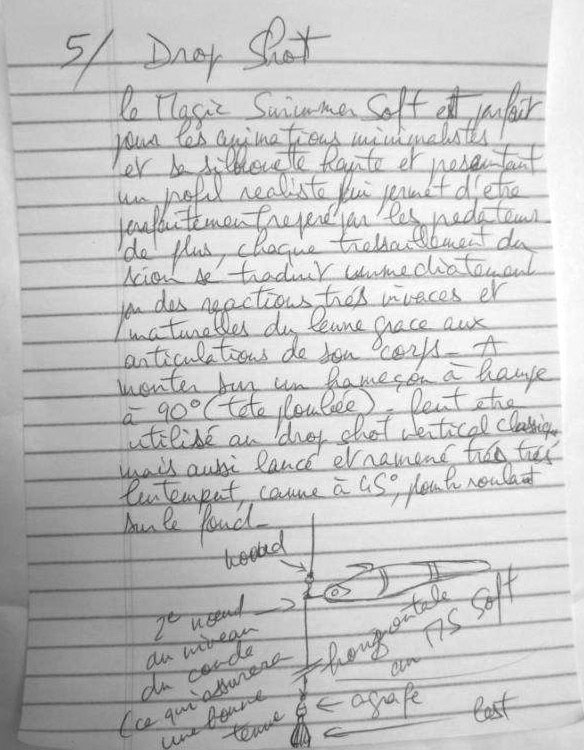 5/ Drop Shot
le Magic Swimmer Soft est parfait
pour les animations minimalistes
et sa silhouette haute et presentant
un profil realiste qui permet d'etre
parfaitement repéré par les predateurs
de plus, chaque tressaillement du
scion se traduit immediatement
par des reactions très vivaces et
naturelles du leurre grace aux
articulations de son corps - A
monter sur un hameçon à hampe
à 90° (tête plombée) - Peut etre
utilisé au drop shot vertical classique
mais aussi lancé et ramené très très
lentement, canne à 45°, plomb roulant
sur le fond -
noeud
2e noeud
au niveau
du coude
(ce qui assurera
une bonne
tenue
horizontale
au MS Soft
agrafe
lest